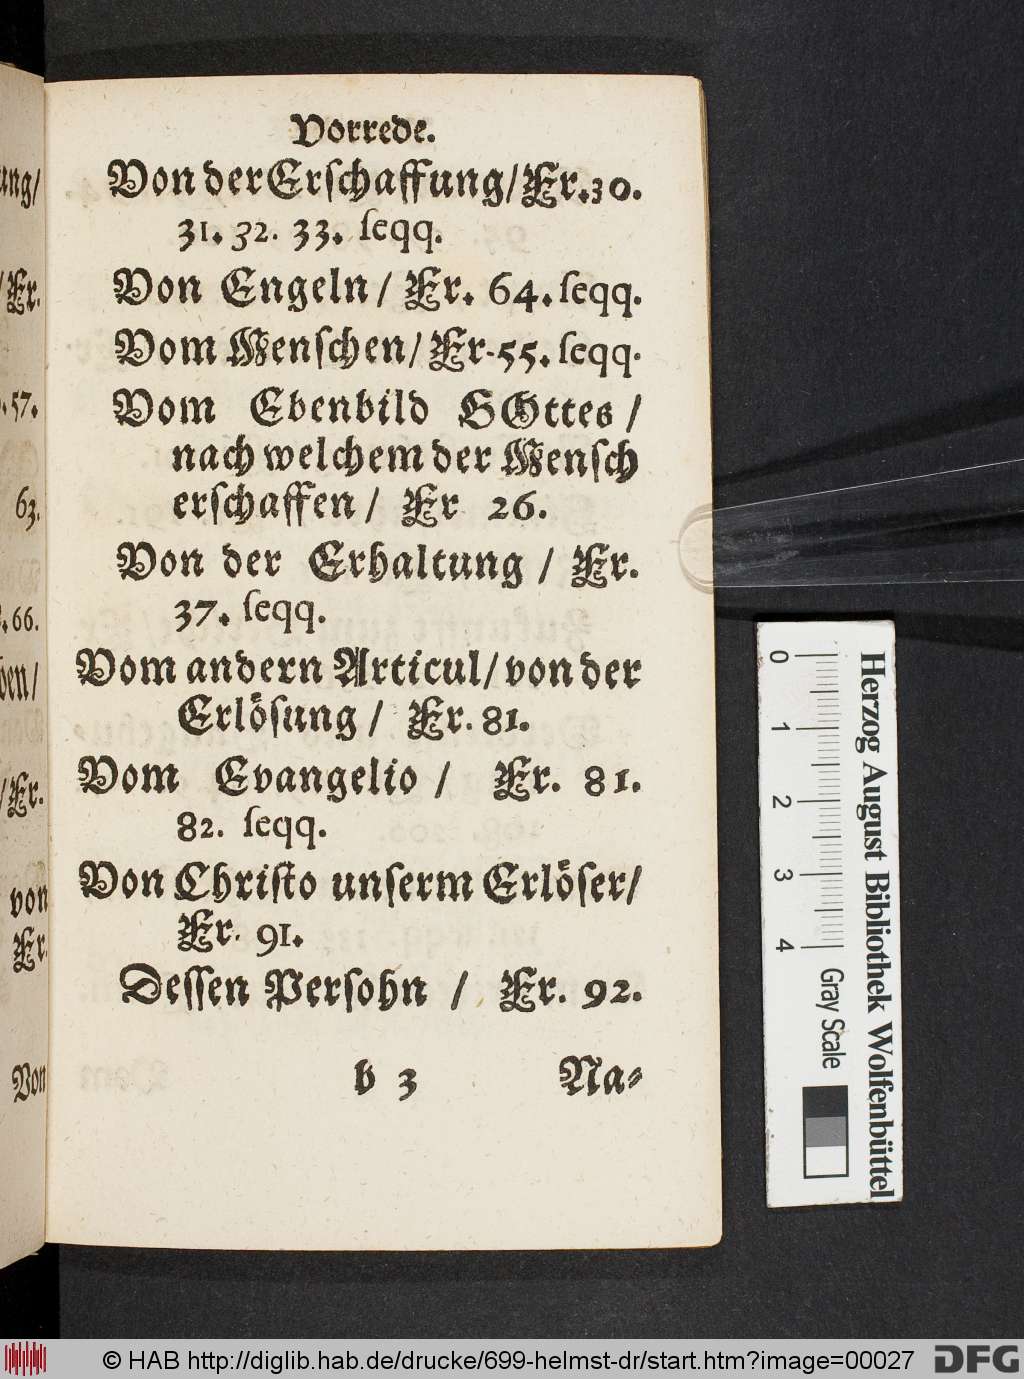 Vorrede.
Von der Erſchaffung/ Fr. 30.
31. 32. 33. ſeqq.
Von Engeln/ Fr. 64. ſeqq.
Vom Menſchen/ Fr. 55. ſeqq.
Vom Ebenbild GOttes /
nach welchem der Menſch
erſchaffen / Fr 26.
Von der Erhaltung / Fr.
37. ſeqq.
Vom andern Articul/ von der
Erlöſung / Fr. 81.
Vom Evangelio / Fr. 81.
82. ſeqq.
Von Chriſto unſerm Erlöſer/
Fr. 91.
Deſſen Perſohn / Fr. 92.
b 3 Na⸗
ung/
/Fr.
.57.
63.
.66.
ben/
/Fr.
von
Fr.
Von
Herzog August Bibliothek Wolfenbüttel
0 1 2 3 4 Gray Scale
© HAB http://diglib.hab.de/drucke/699-helmst-dr/start.htm?image=00027
DFG